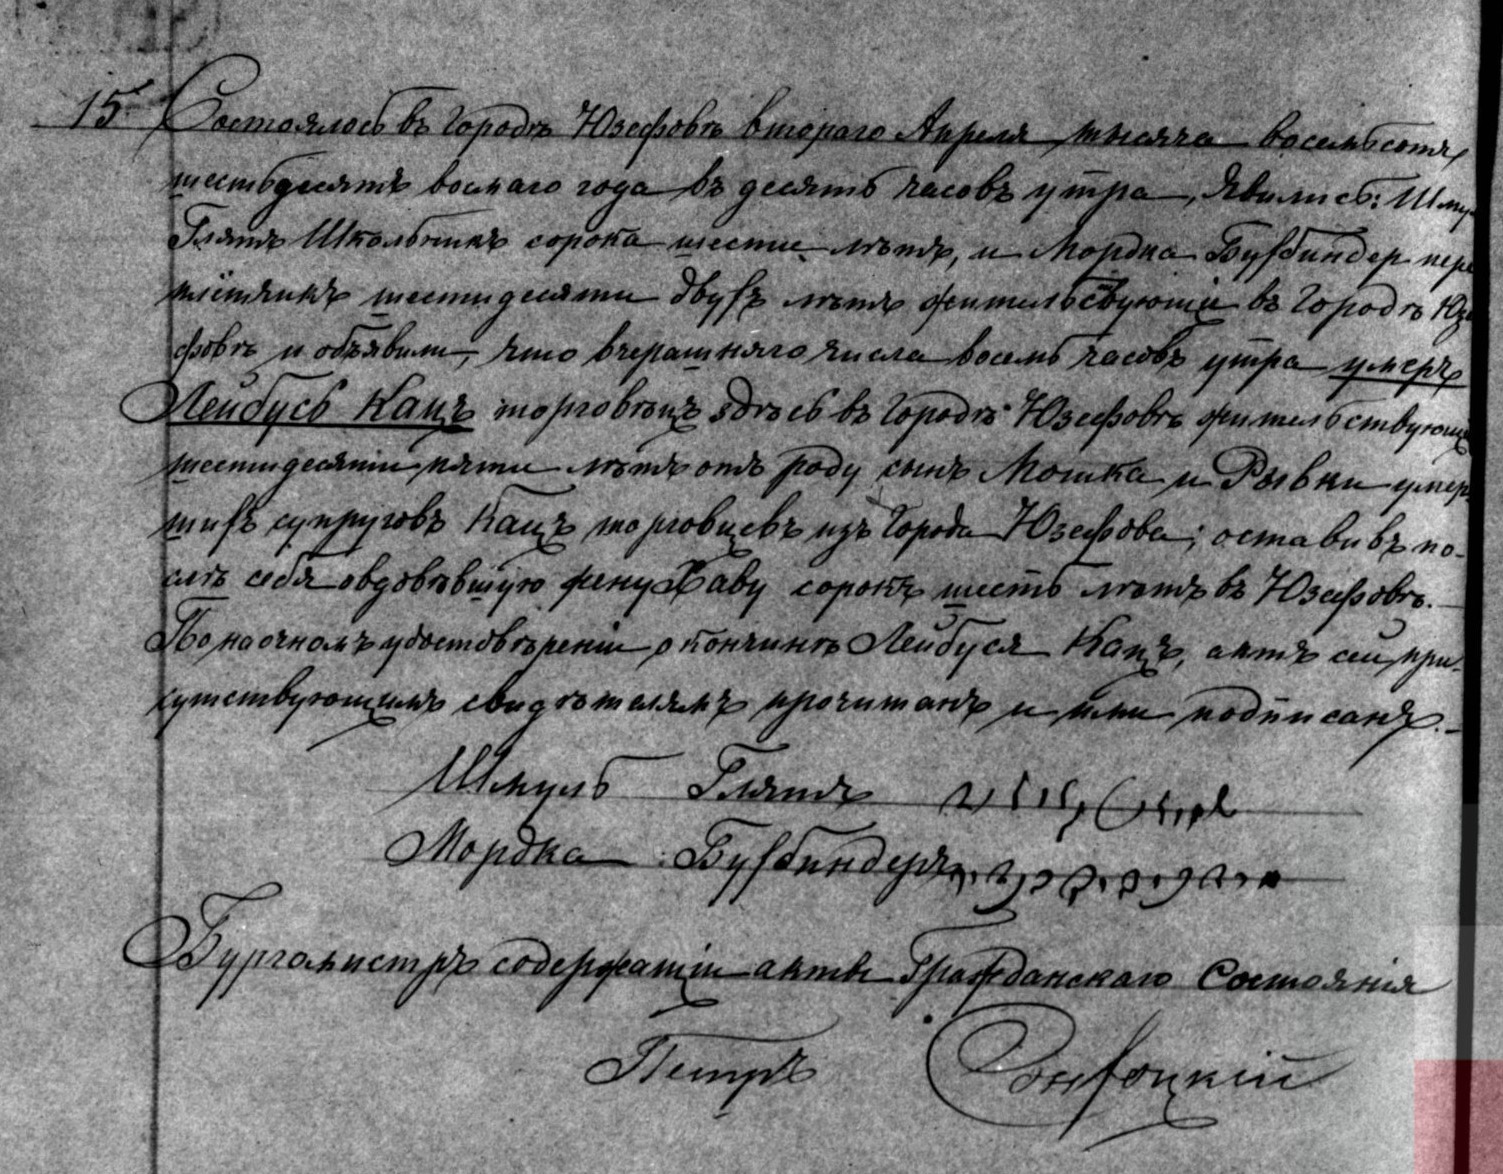 15. Состоялось въ Городѣ Юзефовѣ втораго Апреля тысяча восемьсотъ
шестьдесятъ восмаго года въ десять часовъ утра, Явились: Шму
Глятъ Школьникъ сорока шести лѣтъ, и Мордка Бухбиндер пере
плётчикъ шестидесяти двухъ лѣтъ жительствующіе въ Городѣ Юзе
фовѣ и объявили, что вчерашняго числа восемь часовъ утра умеръ
Лейбусь Кацъ торговецъ здѣсь въ Городѣ Юзефовѣ жительствующій
шестидесяти пяти лѣтъ отъ роду сынъ Мошка и Рывки умер
шихъ супруговъ Кацъ торговцевъ изъ Города Юзефова; оставивъ по-
слѣ себя овдовѣвшую жену Хаву сорокъ шесть лѣтъ въ Юзефовѣ.
По наочномъ удостовѣреніи о кончинѣ Лейбуся Кацъ, актъ сей при-
сутствующимъ свидѣтелямъ прочитанъ и ими подписанъ.
Шмуль Глятъ
Мордка Бухбиндеръ
Бургомистръ содержащій акты Гражданскаго Состоянія
Петръ